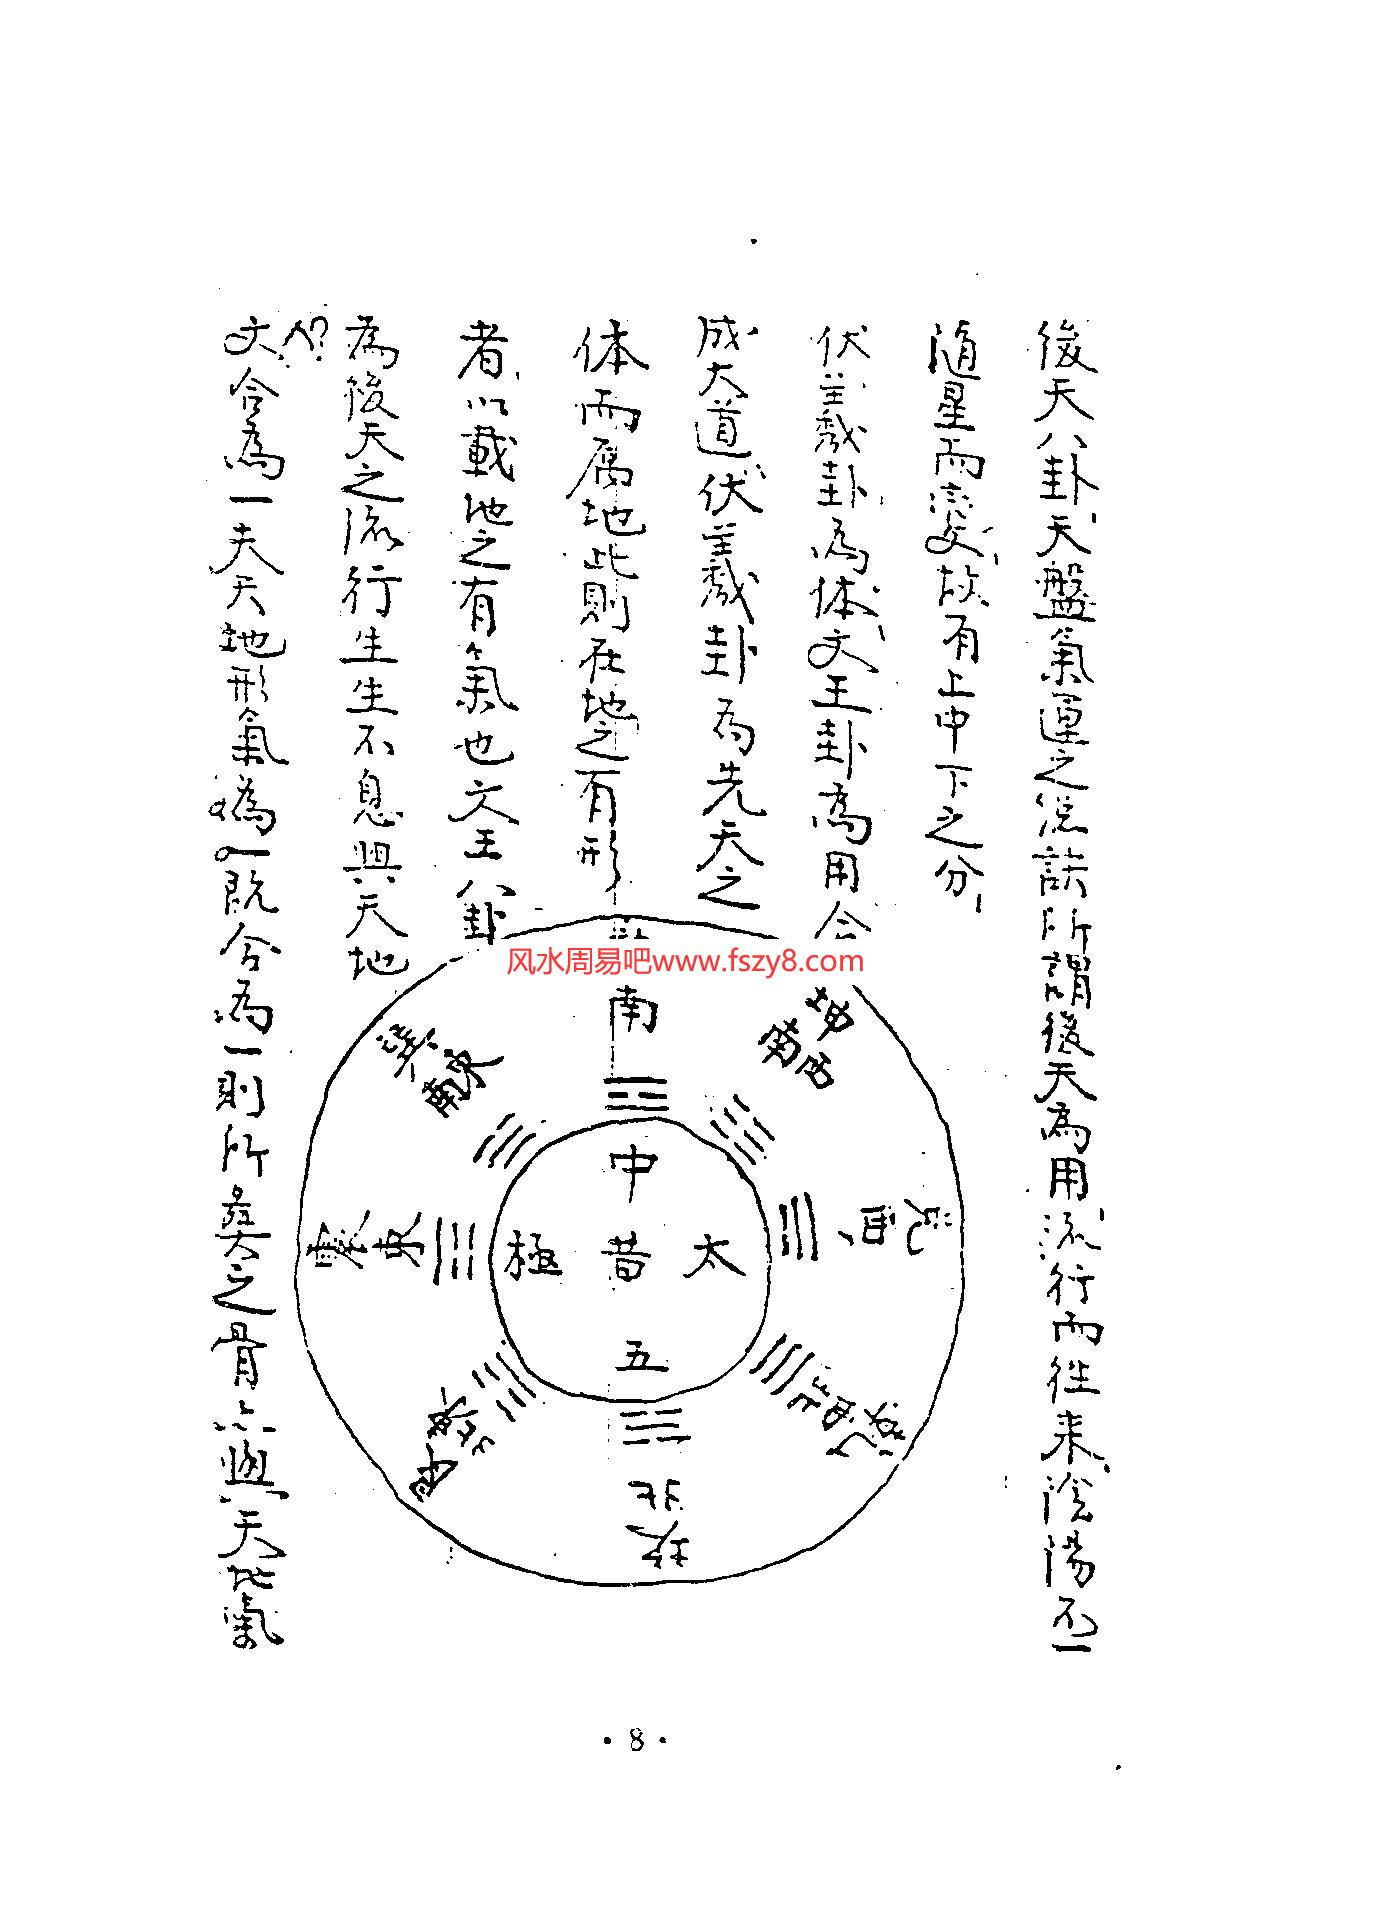 後天八卦天盤氣運之説訣所謂後天為用流行而往来陰陽不一
随星而変故有上中下之分
伏羲卦為体文王卦為用合
成大道伏羲卦為先天之
体而属地此則在地之有形
者以載地之有氣也文王八卦
為後天之流行生生不息與天地
文合為一夫天地形氣為一既合為一則所奠之骨亦與天地氣
风水周易吧www.fszy8.com
離
南
坤
西南
兌
西
乾
西北
坎
北
艮
東北
震
東
巽
東南
中
太昔極
五
·8·